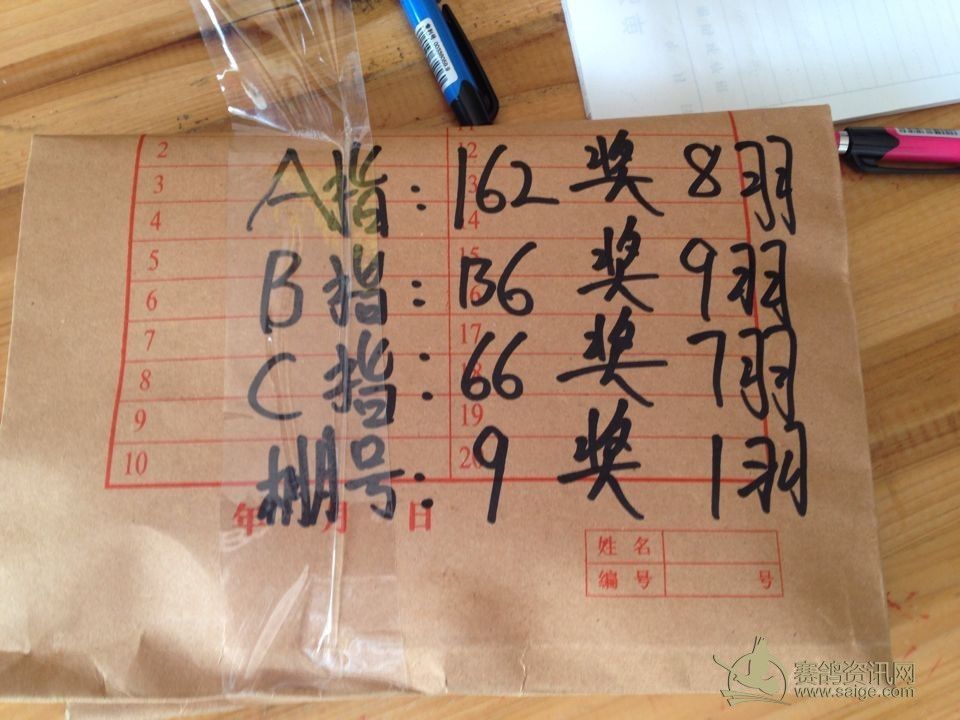 A指：162 奖 8羽
B指：136 奖 9羽
C指：66 奖 7羽
棚号：9 奖 1羽
2
3
4
5
6
7
8
9
10
12
17
19
年 月 日
姓名
编号 号
赛鸽资讯网
www.saige.com